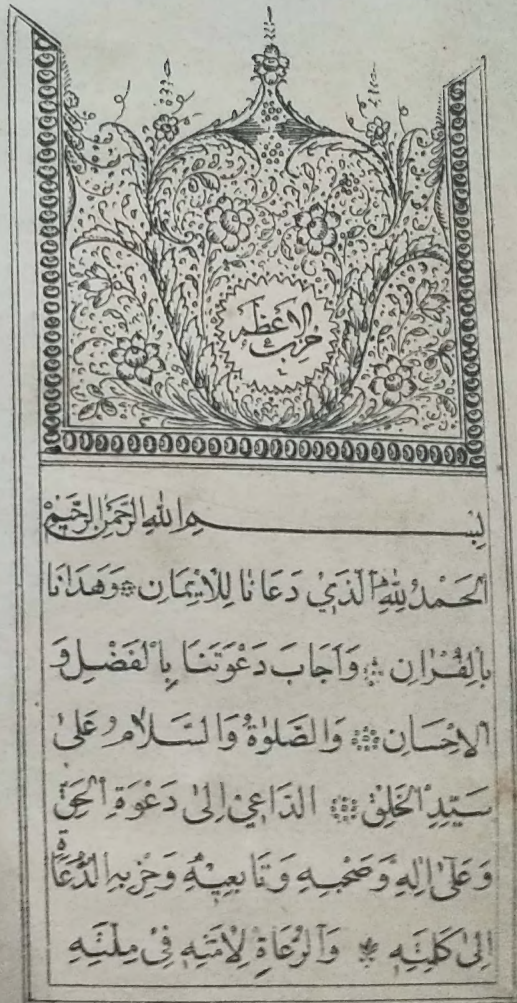 حزب الاعظم
بِسْمِ اللهِ الرَّحْمٰنِ الرَّحِيْمِ
اَلْحَمْدُ لِلّٰهِ الَّذِيْ دَعَانَا لِلْاِيْمَانِ وَهَدَانَا
بِالْقُرْاٰنِ وَاَجَابَ دَعْوَتَنَا بِالْفَضْلِ وَ
الْاِحْسَانِ وَالصَّلٰوةُ وَالسَّلَامُ عَلٰى
سَيِّدِ الْخَلْقِ الدَّاعِيْ اِلٰى دَعْوَةِ الْحَقِّ
وَعَلٰى اٰلِهِ وَصَحْبِهِ وَتَابِعِيْهِ وَحِزْبِهِ الدُّعَاةِ
اِلٰى كَلِمَتِهِ وَالرُّعَاةِ لِاُمَّتِهِ فِيْ مِلَّتِهِ